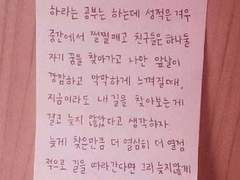 하라는 공부는 하는데 성적은 겨우
중간에서 쩔쩔매고 친구들은 하나둘
자기 꿈을 찾아가고 나만 앞날이
깜깜하고 막막하게 느껴질때,
지금이라도 내 길을 찾아보는게
결코 늦지 않았다고 생각하자
늦게 찾은만큼 더 열심히 더 열정
적으로 길을 따라간다면 그리 늦지않게